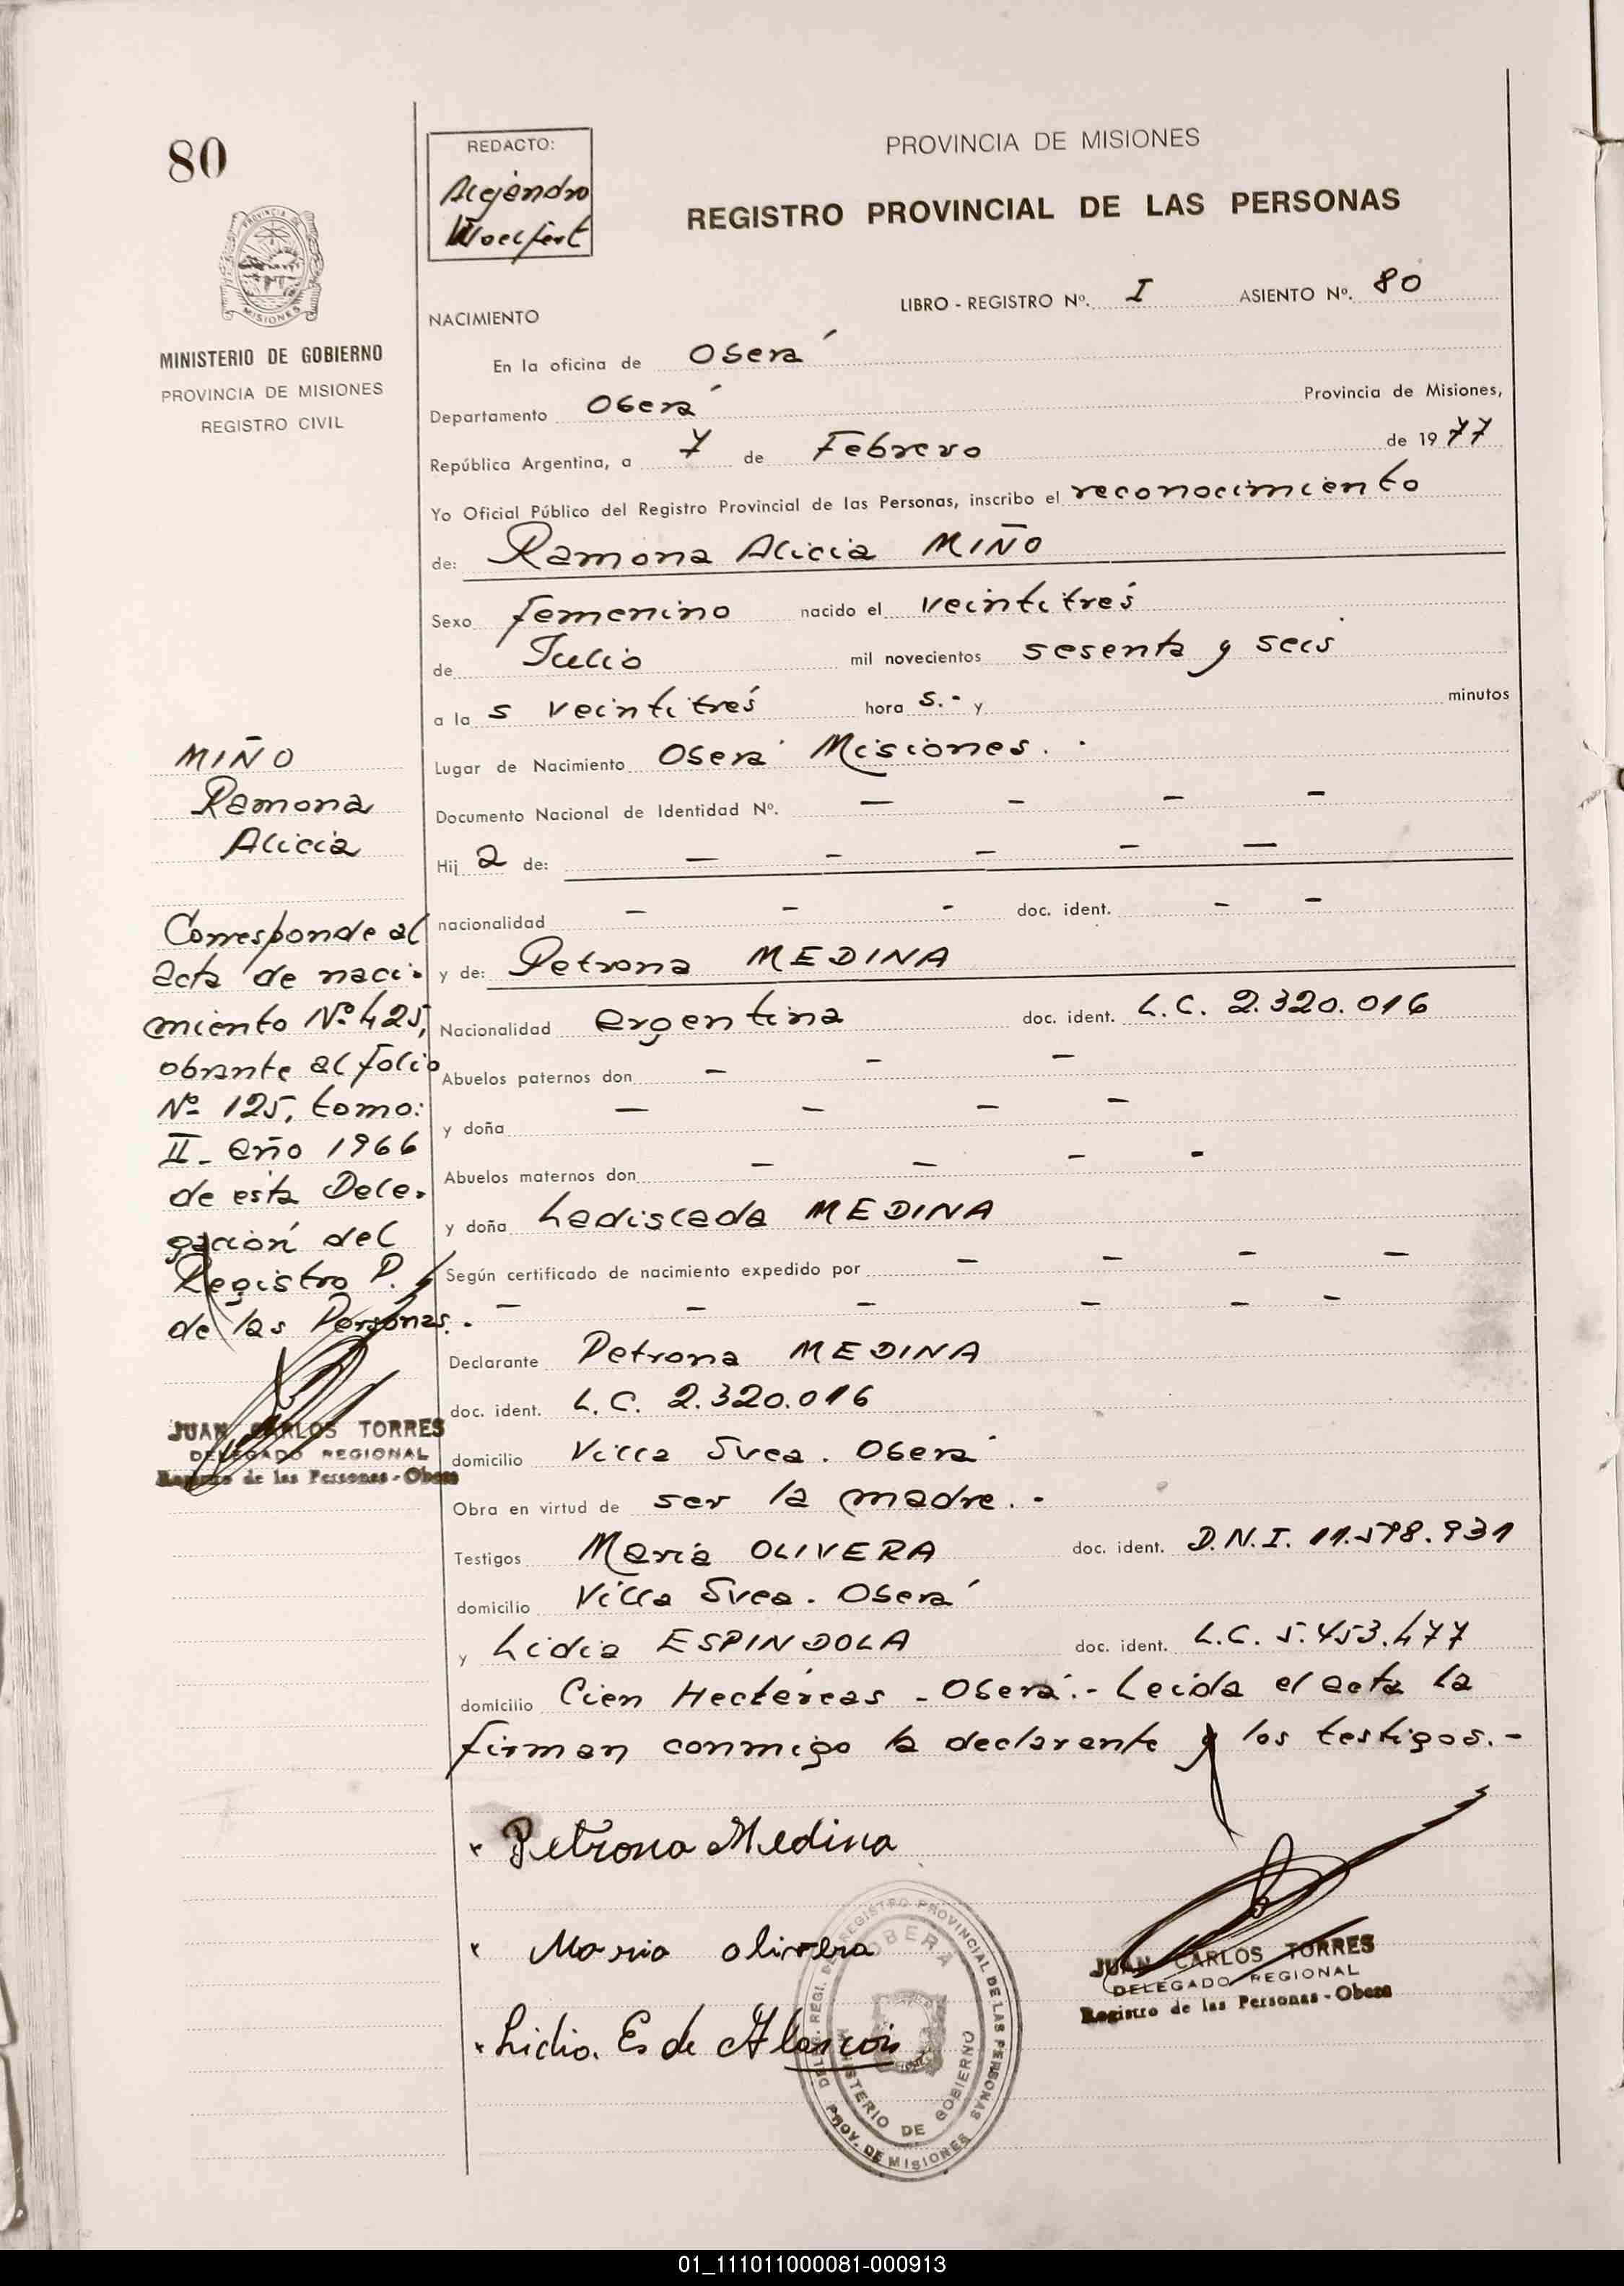 80
PROVINCIA DE MISIONES
MINISTERIO DE GOBIERNO
PROVINCIA DE MISIONES
REGISTRO CIVIL
MIÑO
Ramona
Alicia
Corresponde al
acta de naci-
miento Nº 425,
obrante al folio
Nº 125, tomo:
II - año 1966
de esta Dele-
gación del
Registro P.
de las Personas.-
JUAN CARLOS TORRES
DELEGADO REGIONAL
Registro de las Personas - Obera
REDACTO:
Alejandro
Woelfert
PROVINCIA DE MISIONES
REGISTRO PROVINCIAL DE LAS PERSONAS
LIBRO - REGISTRO Nº. I ASIENTO Nº. 80
NACIMIENTO
En la oficina de Oberá
Departamento Oberá Provincia de Misiones,
República Argentina, a 7 de Febrero de 1977
Yo Oficial Público del Registro Provincial de las Personas, inscribo el reconocimiento
de: Ramona Alicia MIÑO
Sexo femenino nacido el veintitrés
de Julio mil novecientos sesenta y seis
a la s veintitrés hora s.- y minutos
Lugar de Nacimiento Oberá Misiones. -
Documento Nacional de Identidad Nº. — — — —
Hij a de: — — — — —
nacionalidad — — — doc. ident. — —
y de: Petrona MEDINA
Nacionalidad argentina doc. ident. L.C. 2.320.016
Abuelos paternos don — — —
y doña — — — —
Abuelos maternos don — — — -
y doña Ladislada MEDINA
Según certificado de nacimiento expedido por — — — —
— — — — — —
Declarante Petrona MEDINA
doc. ident. L. C. 2.320.016
domicilio Villa Svea. Oberá
Obra en virtud de ser la madre. -
Testigos María OLIVERA doc. ident. D.N.I. 11.598.931
domicilio Villa Svea. Oberá
y Lidia ESPINDOLA doc. ident. L.C. 5.453.477
domicilio Cien Hectáreas - Oberá.- Leída el acta la
firman conmigo la declarante y los testigos.-
Petrona Medina
Maria olivera
Lidia. Es de Alarcón
DELEG. REGI. DEL REGISTRO PROVINCIAL DE LAS PERSONAS
OBERA
MINISTERIO DE GOBIERNO
PROV. DE MISIONES
JUAN CARLOS TORRES
DELEGADO REGIONAL
Registro de las Personas - Obera
01_111011000081-000913